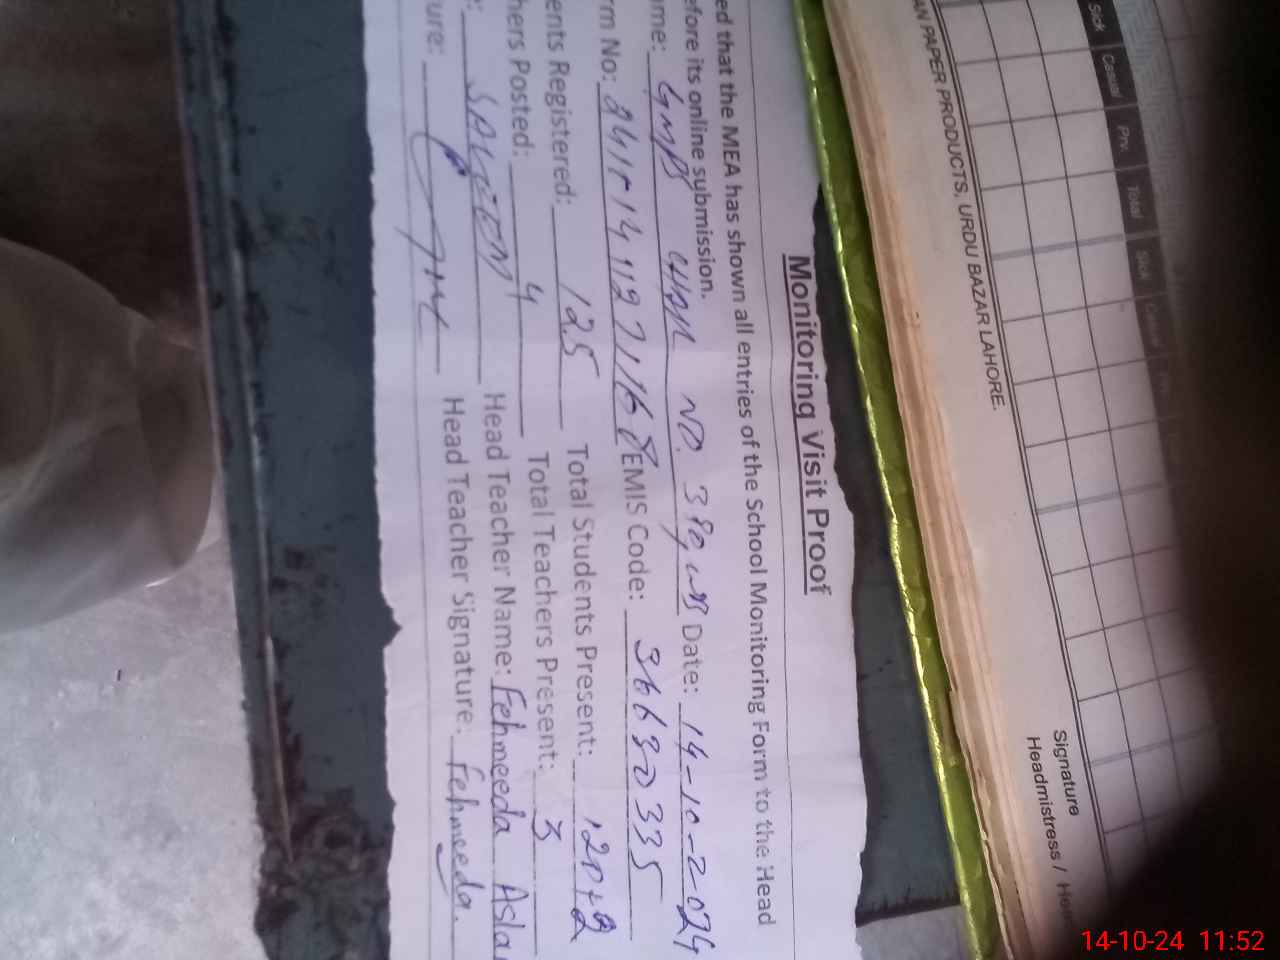 Monitoring Visit Proof
ed that the MEA has shown all entries of the School Monitoring Form to the Head
efore its online submission.
ame: GMPS CHAK NO. 389 WB Date: 14-10-2024
rm No: EMIS Code: 36630335
ents Registered: 125 Total Students Present: 120+2
hers Posted: 4 Total Teachers Present: 3
: SALEEM Head Teacher Name: Fehmeeda Asla
ure: Head Teacher Signature: Fehmeeda.
AN PAPER PRODUCTS, URDU BAZAR LAHORE.
Sick Casual Prv. Total Sick
Signature
Headmistress /
14-10-24 11:52